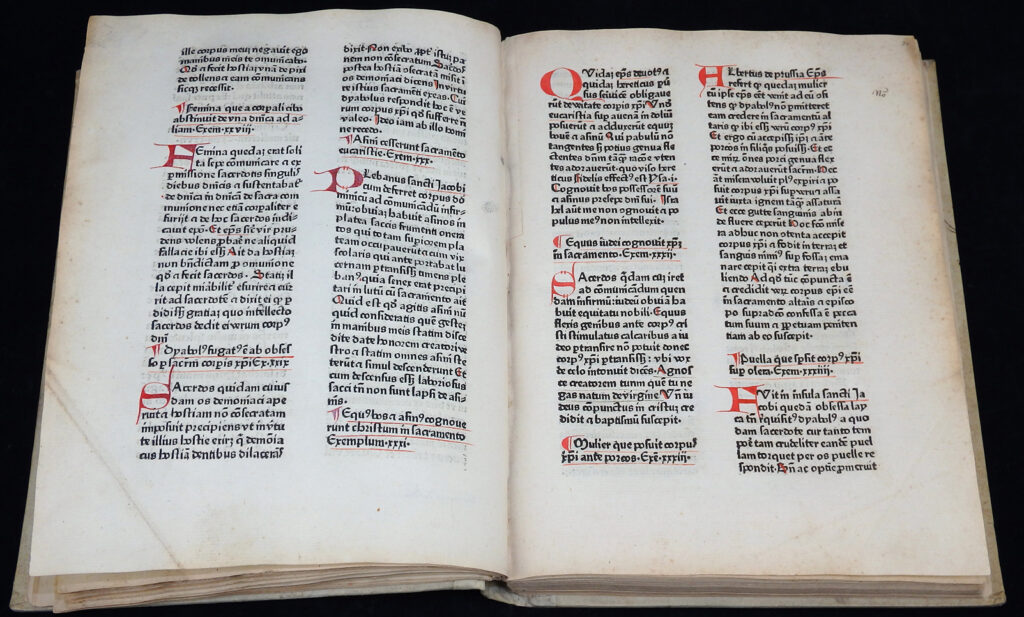 ille corpus meū negauit ego
manibus meis te omunicabo·
Qd a fecit hostiā nanā de pixi
de tollens a eam cōmunicans
sicq recessit·
Femina que a corpali cito
abstinuit de vna dnīca ad a-
liam· Exem· xxviii·
Femina quedaꝫ erat soli
ta sepe cōmunicare a ex
pmissione sacerdos singulis
diebus dnīcis a sustentabat᷑
de dnīca in dnīcā de sacra com
munione nec etiā corpaliter e-
surijt a de hoc sacerdos indi-
cauit epō· Et epūs
dens volens pbare ne aliquid
fallacie ibi eēt Ait da hostiaꝫ
non bn̄dictam p omunione
qd a fecit sacerdos· Statiꝫ il
la cepit esurire a cur
rit ad sacerdotē a dixit ei
didisset gratiaꝫ quo intellecto
sacerdos dedit ei verum corp᷒
dnī
Dyabol᷒ fugat᷒ ē ab obses
so p sacrm̄ corpis xp̄i Ex· xxix
Sacerdos quidam cuius
dam os demoniaci ape
ruit a hostiam nō consecratam
imposuit precipiens vt in v᷑tu
te illius hostie exiret demōia
cus hostiā dentibus dilacerās
dixit· Non exibo ppt᷑ istū pa
nem non consecratum Sacdos
postea hostiā osecratā misit ī
os demoniaci dicens In virtu
te istius sacramēti exeas· Cui
dyabolus respondit hoc ē ve
rum corpus xp̄i qd sufferre nō
valeo· Ideo iam ab illo homi
ne recedo·
Asini cesserunt sacramēto
eucaristie· Exem· xxx·
Plebanus sancti Jacobi
cum deferret corpus dō
minicū ad cōmunicādū infir-
mū: obuiaꝫ habuit asinos in
platea saccis frumenti onera
tos qui totam superiorem pla
team occupauerūt a cum vix
scolaris qui ante portabat lu
cernam ptransisset timens ple
ban᷒ quia senex erat precipi
tari in lutū cū sacramēto ait
Quid est qd agitis asini nūc
quid consideratis quē gesteꝫ
in manibus meis statim disce
dite date honorem creatori ve
stro a statim omnes asini ste
terūt a simul descenderūt Et
cum descensus esset laboriosus
sacci tn̄ non sunt lapsi de asi-
nis·
Equ᷒ bos a asin᷒ cognoue
runt christum in sacramento
Exemplum· xxxi·
Quidaꝫ epūs deuot᷒ a
quidaꝫ hereticus pi
sius seiuicē obligaue
rūt de vitate corpis xp̄i· Vnd
eucaristiā sup auenā in doliū
posuerūt a adduxerūt equuꝫ
bouē a asinū Qui pabulū nō
tangentes sꝫ potius genua fle
ctentes dnm̄ tāqꝫ racōe vten
tes adorauerūt· quo viso here
ticus fidelis effect᷒ est ysa· i·
Cognouit bos possesorē suū
a asinus presepe dnī sui· Isra
hel aūt me non ognouit a po
pulus me᷒ non intellexit·
Equus iudei cognouit xp̄m
in sacramento· Exem· xxxii·
Sacerdos qdam cū iret
ad cōmunicādum quen
dam infirmū: iudeuꝫ obuiā ha
buit equitatu nobili· Equus
flexis genibus ante corp᷒ cri
sti stimulatus calcaribus a iu
deo ptransire nō potuit donec
corp᷒ xp̄i ptransisset: vbi vox
de celo intonuit dicēs· Agnos
ce creatorem tuum quē tu ne
gas natum de virgine· Vn̄ iu
deus cōpunctus in cristū cre
didit a baptismū suscepit·
Mulier que posuit corpus
xp̄i ante porcos· Exē· xxxiii·
Albertus de prussia Epūs
refert qd quedaꝫ mulier
cū ipse epūs eēt venit ad eū osi
tens qd dyabol᷒ nō pmitteret
eam credere in sacramētū al
taris qd ibi eēt verū corp᷒ xp̄i
Et ergo cū accepisset ipm̄ a iāte
porcos in siliqs posuisset· Et ec
ce mire oēs porci genua flex
erūt a adorauerūt sacrm̄· Nec
āt misera voluit expiri a po
suit corpus xp̄i sup veru a assa
uit iuxta ignem tāqꝫ assatura
Et ecce gutte sanguinis abin
de fluere ceperūt Hoc om̄ mise
ra adhuc non otenta accepit
corpus xp̄i a fodit in terrā et
sanguis sup fossaꝫ ema
nare cepit qi extra terrā ebu
liendo Ad qd tūc cōpuncta ē
a credidit veꝝ corpus xp̄i eē
in sacramento altaris a episco
po supradco confessa ē pecca
tum suum a ppetuam peniten
tiam ab eo suscepit·
Puella que spsit corp᷒ xp̄i
sup olera· Exem· xxxiiij·
Fvit in insula sancti Ja
cobi quedā obsessa lap
ca tn̄ requisit᷒ dyabol᷒ a quo
dam sacerdote cur tanto tem
pore tam crudeliter eandē puel
lam torquet per os puelle re
spondit· Bn̄ ac optie pmeruit